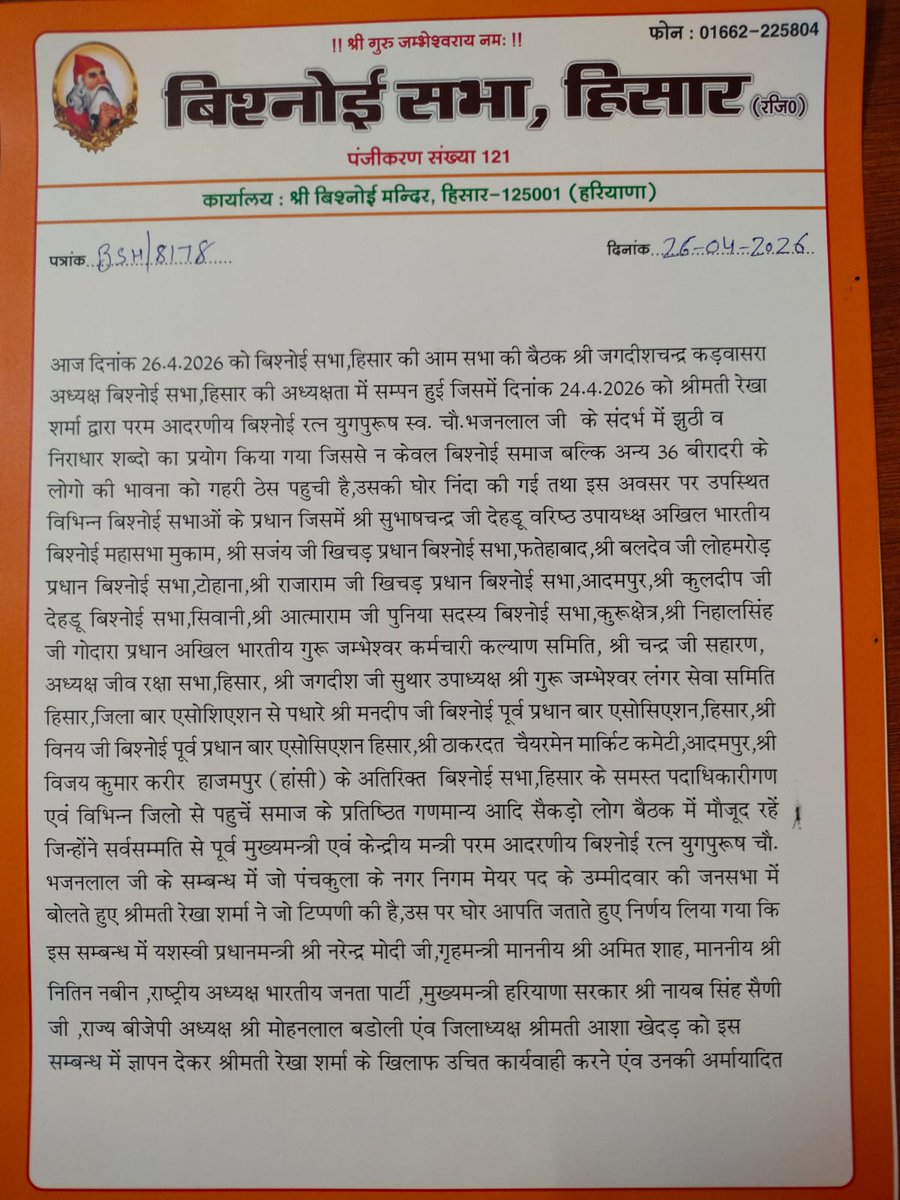 फोन : 01662-225804
!! श्री गुरु जम्भेश्वराय नमः !!
बिश्नोई सभा, हिसार (रजि0)
पंजीकरण संख्या 121
कार्यालय : श्री बिश्नोई मन्दिर, हिसार-125001 (हरियाणा)
पत्रांक BSH/8178
दिनांक 26-04-2026
आज दिनांक 26.4.2026 को बिश्नोई सभा,हिसार की आम सभा की बैठक श्री जगदीशचन्द्र कड़वासरा
अध्यक्ष बिश्नोई सभा,हिसार की अध्यक्षता में सम्पन हुई जिसमें दिनांक 24.4.2026 को श्रीमती रेखा
शर्मा द्वारा परम आदरणीय बिश्नोई रत्न युगपुरूष स्व. चौ.भजनलाल जी के संदर्भ में झुठी व
निराधार शब्दो का प्रयोग किया गया जिससे न केवल बिश्नोई समाज बल्कि अन्य 36 बीरादरी के
लोगो की भावना को गहरी ठेस पहुची है,उसकी घोर निंदा की गई तथा इस अवसर पर उपस्थित
विभिन्न बिश्नोई सभाओं के प्रधान जिसमें श्री सुभाषचन्द्र जी देहडू वरिष्ठ उपायध्क्ष अखिल भारतीय
बिश्नोई महासभा मुकाम, श्री सजंय जी खिचड़ प्रधान बिश्नोई सभा,फतेहाबाद,श्री बलदेव जी लोहमरोड़
प्रधान बिश्नोई सभा,टोहाना,श्री राजाराम जी खिचड़ प्रधान बिश्नोई सभा,आदमपुर,श्री कुलदीप जी
देहडू बिश्नोई सभा,सिवानी,श्री आत्माराम जी पुनिया सदस्य बिश्नोई सभा,कुरूक्षेत्र,श्री निहालसिंह
जी गोदारा प्रधान अखिल भारतीय गुरू जम्भेश्वर कर्मचारी कल्याण समिति, श्री चन्द्र जी सहारण,
अध्यक्ष जीव रक्षा सभा,हिसार, श्री जगदीश जी सुथार उपाध्यक्ष श्री गुरू जम्भेश्वर लंगर सेवा समिति
हिसार,जिला बार एसोशिएशन से पधारे श्री मनदीप जी बिश्नोई पूर्व प्रधान बार एसोसिएशन,हिसार,श्री
विनय जी बिश्नोई पूर्व प्रधान बार एसोसिएशन हिसार,श्री ठाकरदत चैयरमेन मार्किट कमेटी,आदमपुर,श्री
विजय कुमार करीर हाजमपुर (हांसी) के अतिरिक्त बिश्नोई सभा,हिसार के समस्त पदाधिकारीगण
एवं विभिन्न जिलो से पहुचें समाज के प्रतिष्ठित गणमान्य आदि सैकड़ो लोग बैठक में मौजूद रहें
जिन्होंने सर्वसम्मति से पूर्व मुख्यमन्त्री एवं केन्द्रीय मन्त्री परम आदरणीय बिश्नोई रत्न युगपुरूष चौ.
भजनलाल जी के सम्बन्ध में जो पंचकुला के नगर निगम मेयर पद के उम्मीदवार की जनसभा में
बोलते हुए श्रीमती रेखा शर्मा ने जो टिप्पणी की है,उस पर घोर आपति जताते हुए निर्णय लिया गया कि
इस सम्बन्ध में यशस्वी प्रधानमन्त्री श्री नरेन्द्र मोदी जी,गृहमन्त्री माननीय श्री अमित शाह, माननीय श्री
नितिन नबीन ,राष्ट्रीय अध्यक्ष भारतीय जनता पार्टी ,मुख्यमन्त्री हरियाणा सरकार श्री नायब सिंह सैणी
जी ,राज्य बीजेपी अध्यक्ष श्री मोहनलाल बडोली एंव जिलाध्यक्ष श्रीमती आशा खेदड़ को इस
सम्बन्ध में ज्ञापन देकर श्रीमती रेखा शर्मा के खिलाफ उचित कार्यवाही करने एंव उनकी अर्मायादित